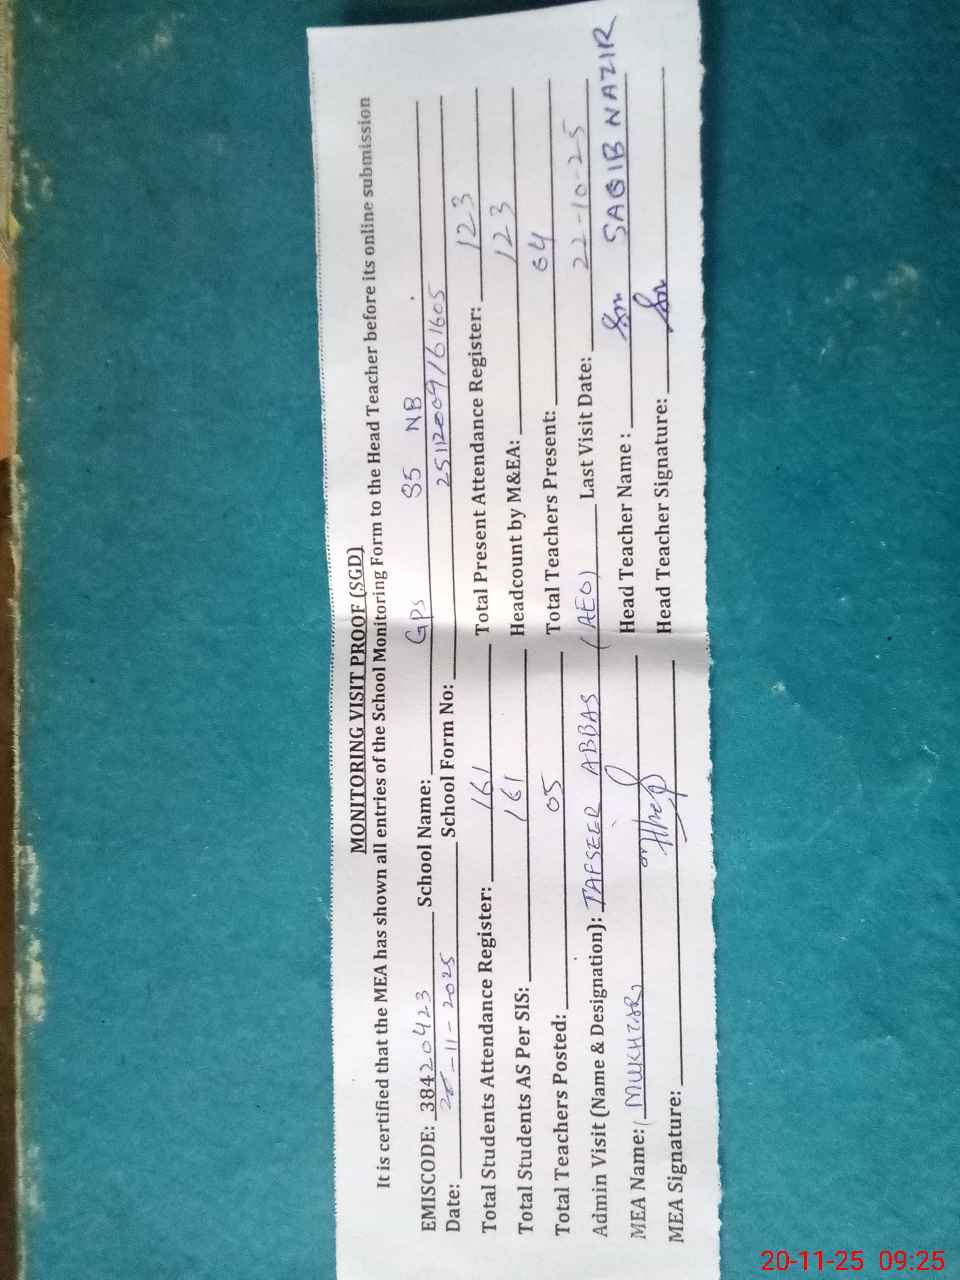 MONITORING VISIT PROOF (SGD)
It is certified that the MEA has shown all entries of the School Monitoring Form to the Head Teacher before its online submission
EMISCODE: 38420423 School Name: GPS 85 NB
Date: 20-11-2025 School Form No: 25112009161605
Total Students Attendance Register: 161 Total Present Attendance Register: 123
Total Students AS Per SIS: 161 Headcount by M&EA: 123
Total Teachers Posted: 05 Total Teachers Present: 04
Admin Visit (Name & Designation): TAFSEER ABBAS (AEO) Last Visit Date: 22-10-25
MEA Name: (MUKHTAR) Head Teacher Name : SAQIB NAZIR
MEA Signature: Head Teacher Signature:
20-11-25 09:25